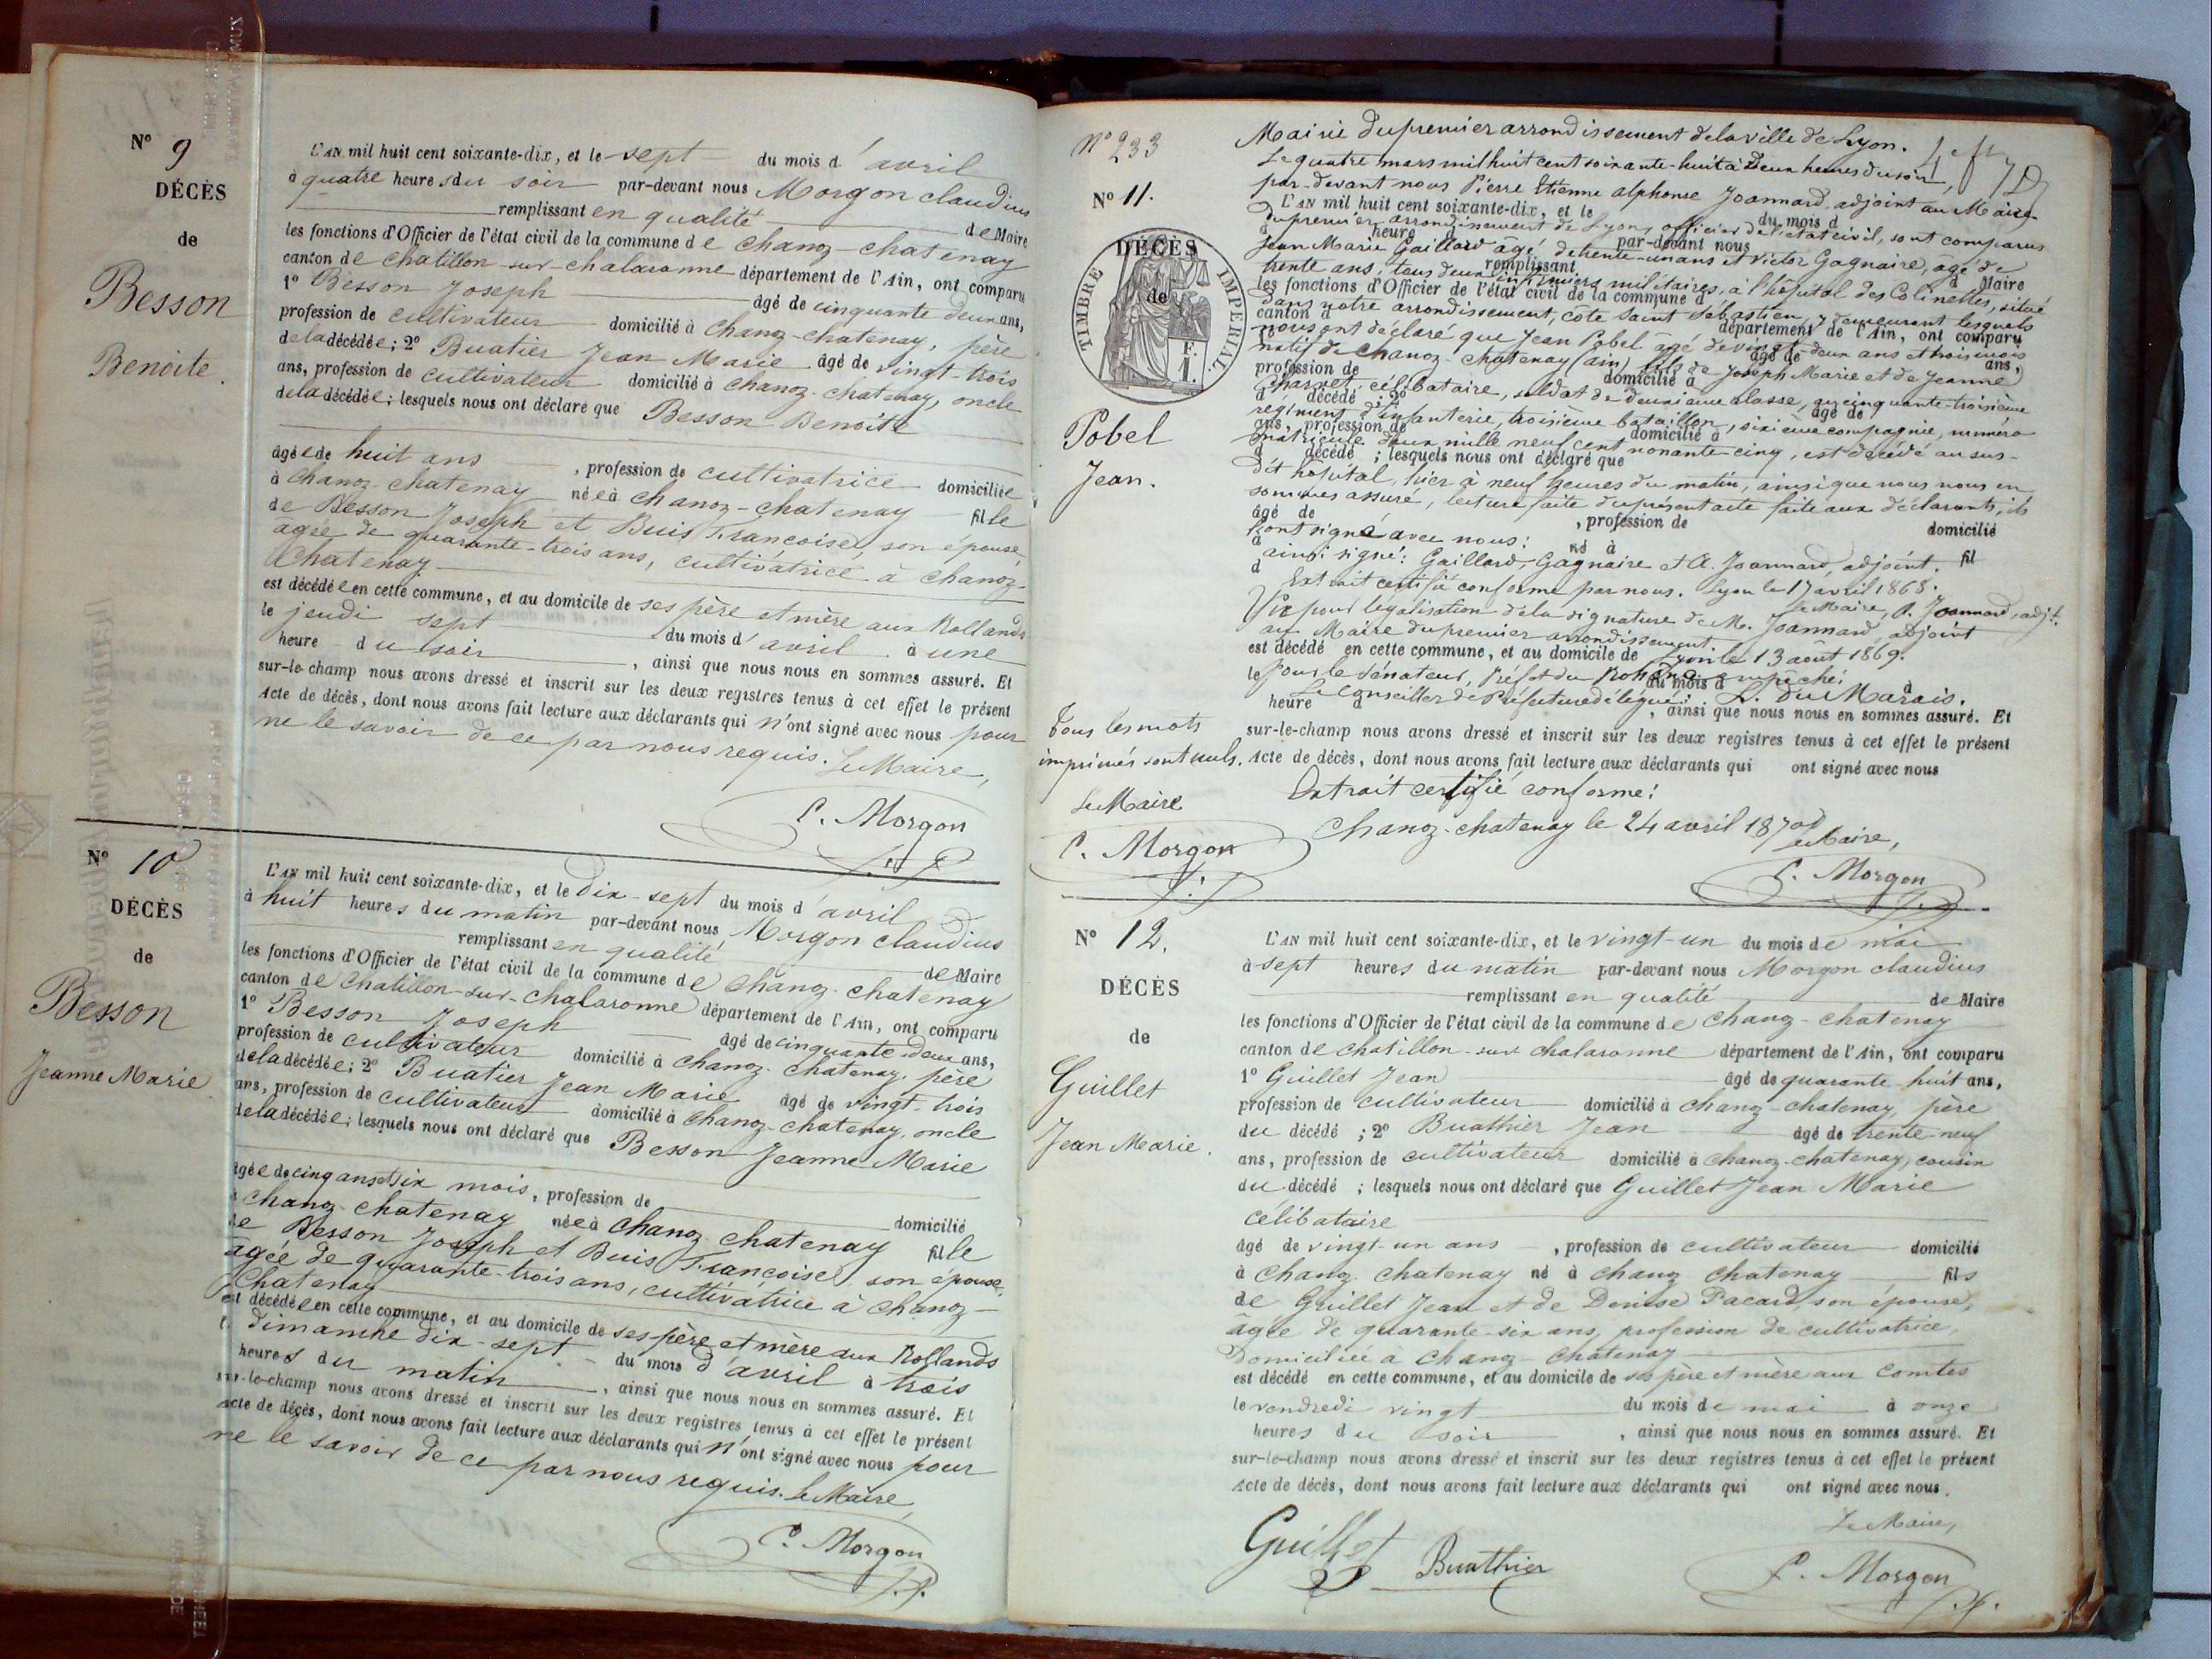 N° 9
DÉCÈS
de
Besson
Benoite.
L'AN mil huit cent soixante-dix, et le sept du mois d'avril
à quatre heures du soir par-devant nous Morgon claudius
remplissant en qualité de Maire
les fonctions d'Officier de l'état civil de la commune de Chanoz-chatenay
canton de chatillon-sur-chalaronne département de l'Ain, ont comparu
1° Besson Joseph âgé de cinquante deux ans,
profession de cultivateur domicilié à Chanoz-chatenay, père
de la décédée; 2° Buatier Jean Marie âgé de vingt-trois
ans, profession de cultivateur domicilié à chanoz-chatenay, oncle
de la décédée; lesquels nous ont déclaré que Besson Benoite
âgée de huit ans, profession de cultivatrice domiciliée
à chanoz-chatenay née à chanoz-chatenay fille
de Besson Joseph et Buis Françoise, son épouse
agée de quarante-trois ans, cultivatrice à chanoz-
Chatenay
est décédée en cette commune, et au domicile de ses père et mère aux Rollands
le jeudi sept du mois d'avril à une
heure du soir, ainsi que nous nous en sommes assuré. Et
sur-le-champ nous avons dressé et inscrit sur les deux registres tenus à cet effet le présent
Acte de décès, dont nous avons fait lecture aux déclarants qui n'ont signé avec nous pour
ne le savoir de ce par nous requis. Le Maire,
C. Morgon
N° 10
DÉCÈS
de
Besson
Jeanne Marie
L'AN mil huit cent soixante-dix, et le Dix-sept du mois d'avril
à huit heures du matin par-devant nous Morgon claudius
remplissant en qualité de Maire
les fonctions d'Officier de l'état civil de la commune de Chanoz-chatenay
canton de Chatillon-sur-chalaronne département de l'Ain, ont comparu
1° Besson Joseph âgé de cinquante deux ans,
profession de cultivateur domicilié à Chanoz-Chatenay, père
de la décédée; 2° Buatier Jean Marie âgé de vingt-trois
ans, profession de cultivateur domicilié à Chanoz-chatenay, oncle
de la décédée; lesquels nous ont déclaré que Besson Jeanne Marie
âgée de cinq ans et six mois, profession de domicilié
à chanoz chatenay née à chanoz chatenay fille
de Besson Joseph et Buis Françoise, son épouse,
agée de quarante-trois ans, cultivatrice à Chanoz-
Chatenay
est décédée en cette commune, et au domicile de ses père et mère aux Rollands
le dimanche dix-sept du mois d'avril à trois
heures du matin, ainsi que nous nous en sommes assuré. Et
sur-le-champ nous avons dressé et inscrit sur les deux registres tenus à cet effet le présent
Acte de décès, dont nous avons fait lecture aux déclarants qui n'ont signé avec nous pour
ne le savoir de ce par nous requis. Le Maire,
C. Morgon
N° 233
N° 11.
DÉCÈS
de
TIMBRE IMPÉRIAL
F.
1.
Pobel
Jean.
Tous les mots
imprimés sont nuls.
Le Maire
C. Morgon
Mairie du premier arrondissement de la ville de Lyon.
Le quatre mars mil huit cent soixante-huit à Deux heures du soir,
par-devant nous Pierre Etienne alphonse Joannard, adjoint au Maire
L'AN mil huit cent soixante-dix, et le du mois d
du premier arrondissement de Lyon, officier de l'état civil, sont comparus
à heure d par-devant nous
Jean Marie Gaillard âgé de trente-un ans et Victor Gagnaire, âgé de
remplissant
trente ans, tous deux infirmiers militaires, à l'hopital des Colinettes, situé
les fonctions d'Officier de l'état civil de la commune d d Maire
dans notre arrondissement, cote Saint Sébastien, y demeurant lesquels
canton d département de l'Ain, ont comparu
nous ont déclaré que Jean Pobel âgé de vingt-deux ans et trois mois
1° âgé de ans,
natif de Chanoz-chatenay (ain) fils de Joseph Marie et de Jeanne
profession de domicilié à
Charvet, célibataire, soldat de deuxième classe, au cinquante-troisième
d décédé ; 2° âgé de
régiment d'infanterie, troisième bataillon, sixième compagnie, numéro
ans, profession de domicilié à
matricule deux mille neuf cent nonante-cinq, est décédé au sus-
d décédé ; lesquels nous ont déclaré que
dit hopital, hier à neuf heures du matin, ainsi que nous nous en
sommes assuré, lecture faite du présent acte faite aux déclarants, ils
âgé de , profession de domicilié
l'ont signé avec nous:
à né à fil
ainsi signé: Gaillard, Gagnaire et A. Joannard, adjoint.
d
Extrait certifié conforme par nous. Lyon le 17 avril 1868.
Le Maire, A. Joannard, adjt.
Vu pour légalisation de la signature de M. Joannard, adjoint
au Maire du premier arrondissement.
est décédé en cette commune, et au domicile de Lyon le 13 août 1869.
Pour le Sénateur, Préfet du Rhône empêché:
le du mois d à
Le Conseiller de Préfecture délégué: L. Du Marais.
heure d , ainsi que nous nous en sommes assuré. Et
sur-le-champ nous avons dressé et inscrit sur les deux registres tenus à cet effet le présent
Acte de décès, dont nous avons fait lecture aux déclarants qui ont signé avec nous
Extrait certifié conforme:
Chanoz-chatenay le 24 avril 1870
Le Maire,
C. Morgon
N° 12.
DÉCÈS
de
Guillet
Jean Marie.
L'AN mil huit cent soixante-dix, et le vingt-un du mois de mai
à sept heures du matin par-devant nous Morgon claudius
remplissant en qualité de Maire
les fonctions d'Officier de l'état civil de la commune de Chanoz-chatenay
canton de chatillon-sur chalaronne département de l'Ain, ont comparu
1° Guillet Jean âgé de quarante-huit ans,
profession de cultivateur domicilié à Chanoz-chatenay, père
du décédé ; 2° Buathier Jean âgé de trente-neuf
ans, profession de cultivateur domicilié à Chanoz-chatenay, cousin
du décédé ; lesquels nous ont déclaré que Guillet Jean Marie
celibataire
âgé de vingt-un ans, profession de cultivateur domicilié
à Chanoz chatenay né à chanoz chatenay fils
de Guillet Jean et de Denise Pacard, son épouse,
agée de quarante-six ans, profession de cultivatrice,
Domiciliée à Chanoz-chatenay
est décédé en cette commune, et au domicile de ses père et mère aux Comtes
le vendredi vingt du mois de mai à onze
heures du soir, ainsi que nous nous en sommes assuré. Et
sur-le-champ nous avons dressé et inscrit sur les deux registres tenus à cet effet le présent
Acte de décès, dont nous avons fait lecture aux déclarants qui ont signé avec nous.
Le Maire,
Guillet Buathier C. Morgon